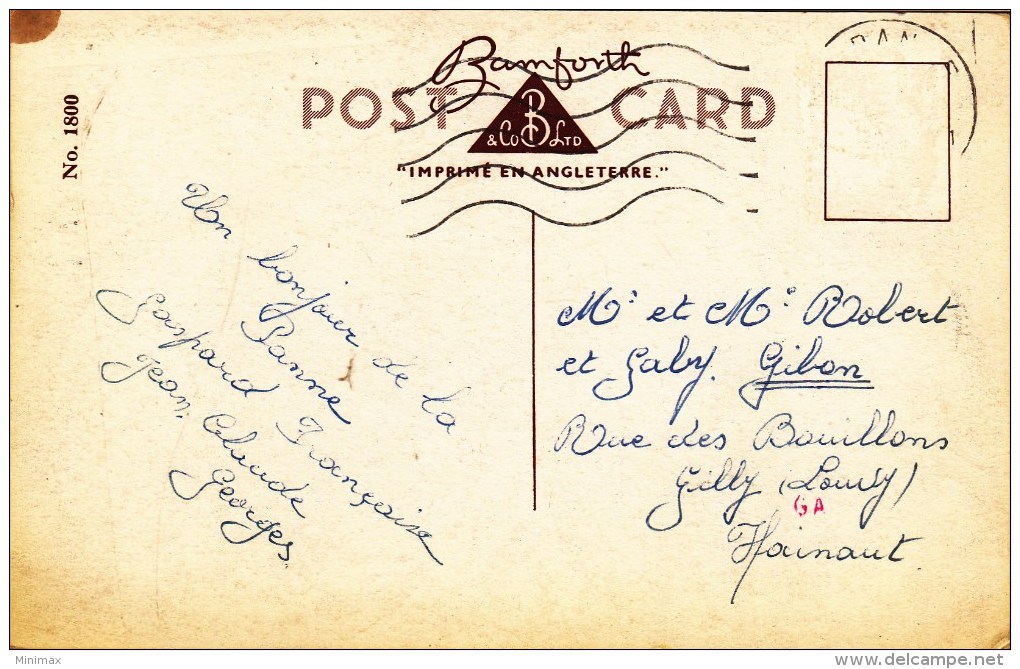 No. 1800
Bamforth
POST CARD
& Co B LTD
"IMPRIMÉ EN ANGLETERRE."
PANNE
Un bonjour de la
Panne
Gaspard Françoise
Jean. Claude
Georges
Mr et Me Robert
et Gaby. Gibon
Rue des Bouillons
Gilly (Sowy)
GA
Hainaut.
Minimax
delcampe.net